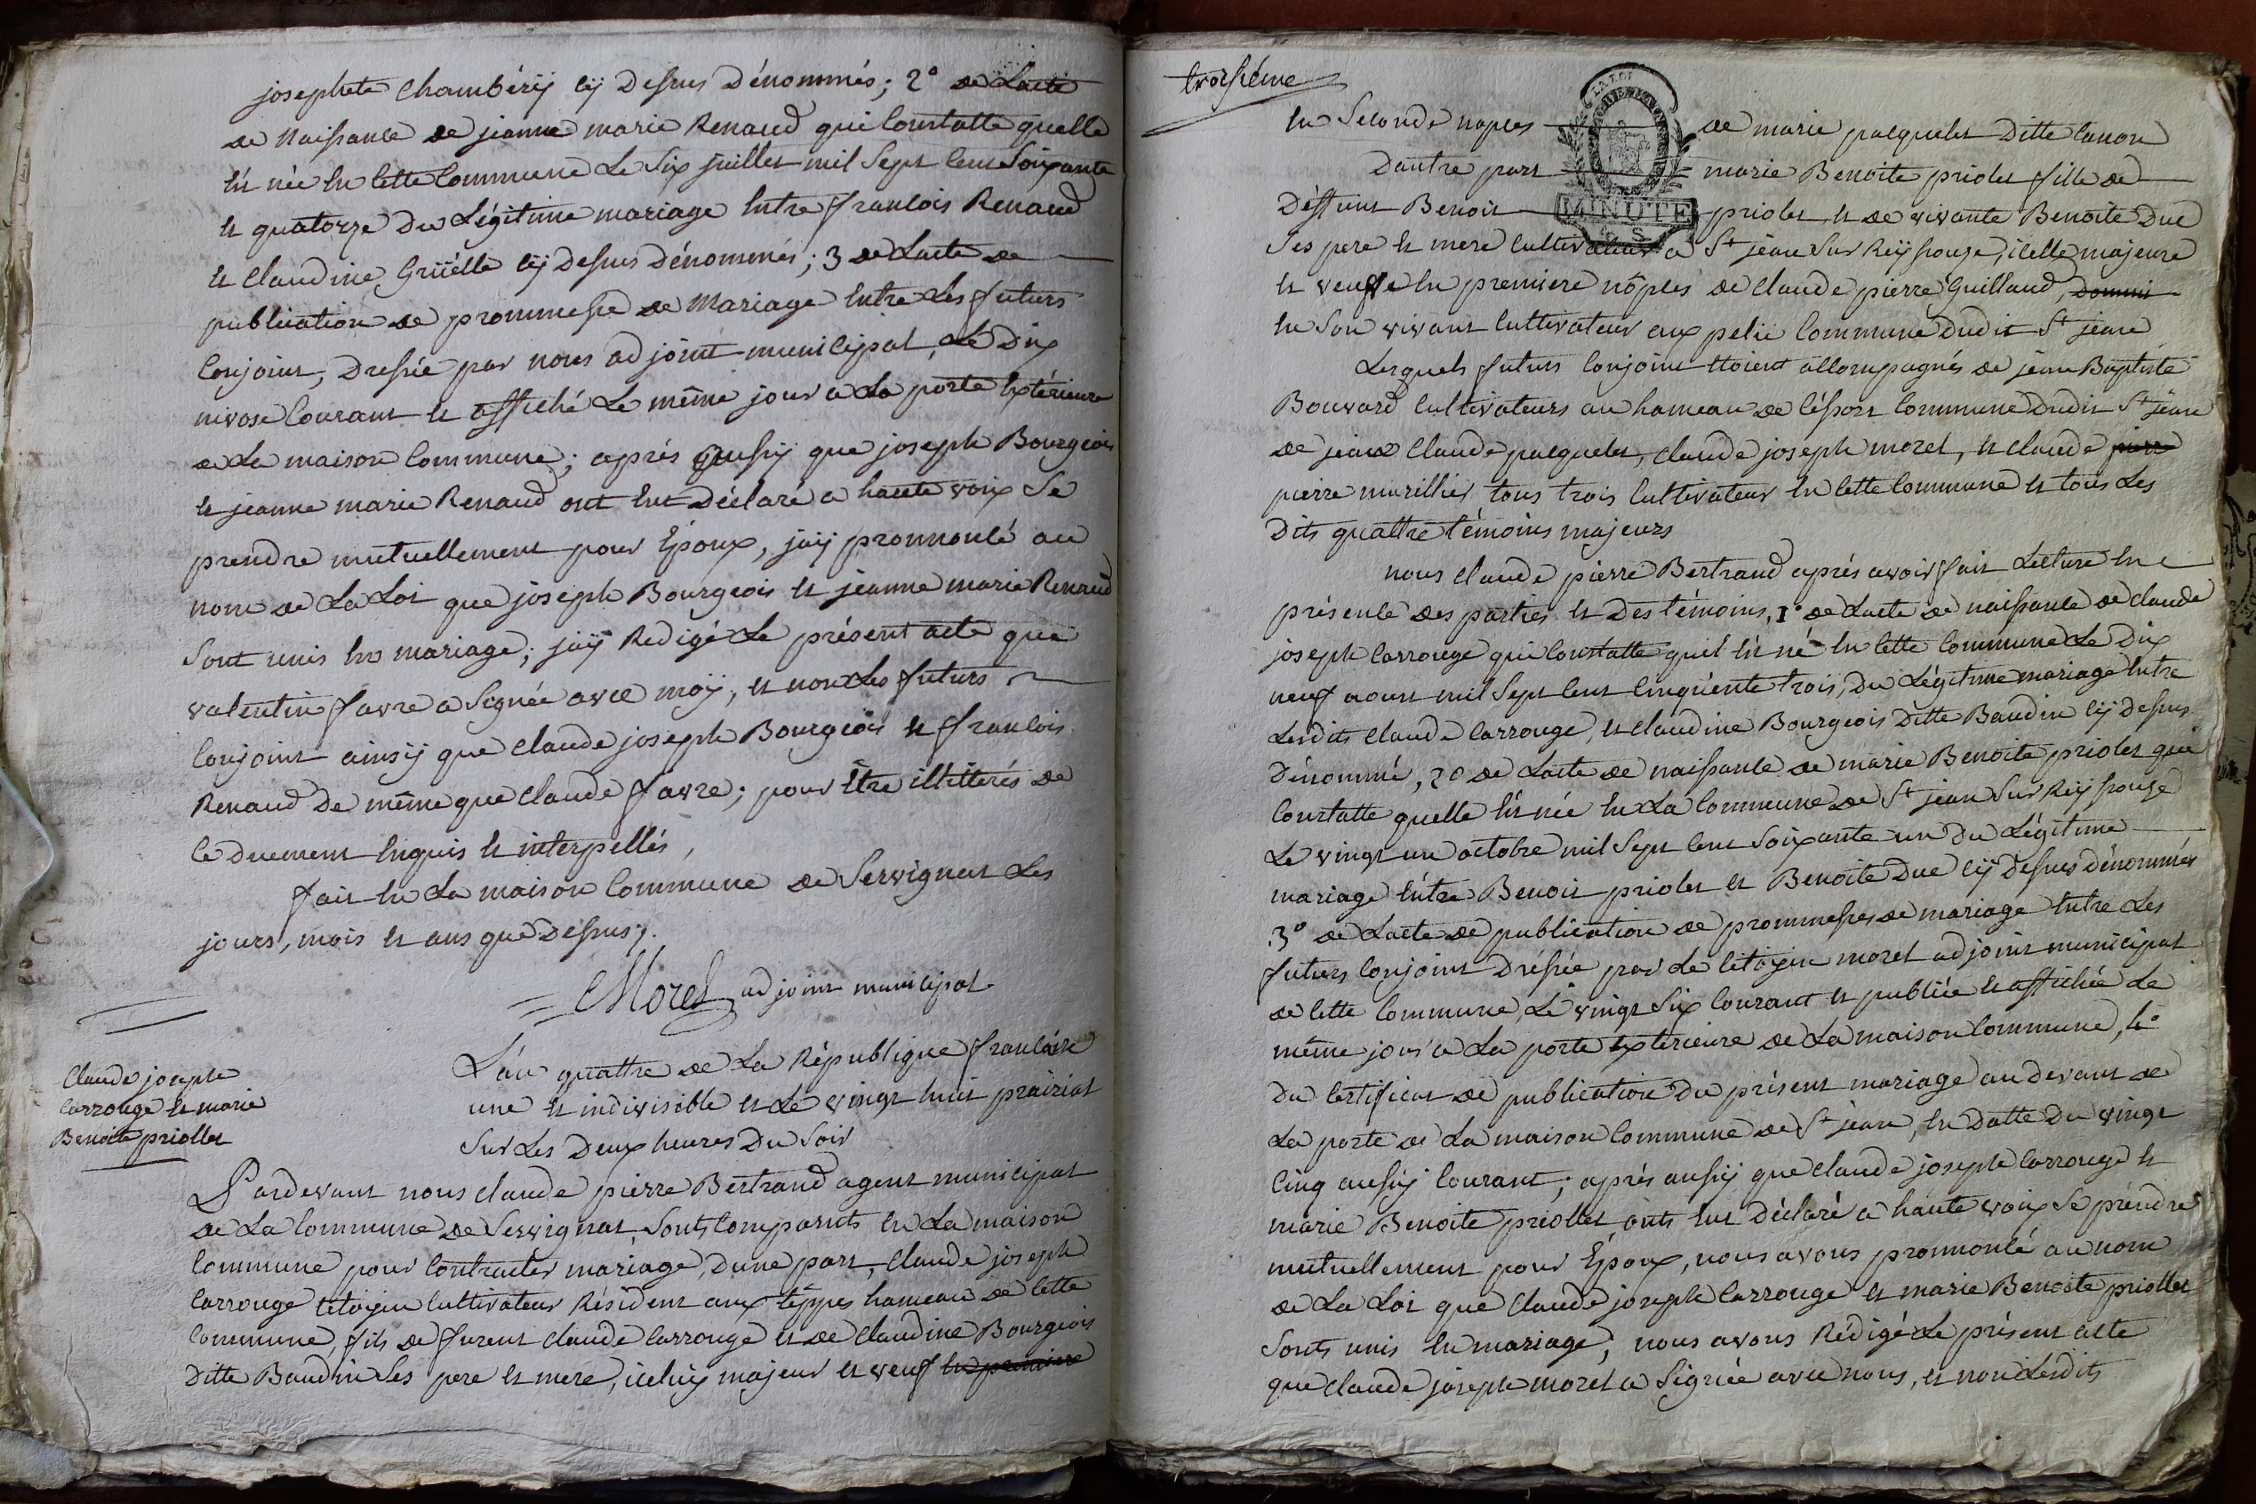 josephte Chambérÿ cÿ Dessus Dénommés; 2° de Lacte
de Naissance de jeanne marie Renaud qui Constatte quelle
Est née En Cette Commune Le Six juillet mil Sept Cent Soixante
Et quatorze Du Légitime mariage Entre francois Renaud
Et Claudine Grüelle cÿ Dessus Dénommés; 3 de Lacte de
publication de prommesse de Mariage Entre Les futurs
Conjoint, Dressée par nous adjoint municipal, Le Dix
nivose Courant Et affiché Le même jour a La porte Extérieure
de La maison Commune; aprés aussÿ que joseph Bourgeois
Et jeanne marie Renaud ont Eut Déclaré a haute voix Se
prendre mutuellement pour Époux, jaÿ pronnoncé au
nom de La Loi que joseph Bourgeois Et jeanne marie Renaud
Sont unis En mariage; jaÿ Redigé Le présent acte que
valentin favre a Signée avec moÿ, Et non Les futurs
Conjoint ainsÿ que Claude joseph Bourgeois Et francois
Renaud De même que Claude favre; pour Etre illitterés de
Ce Duement Enquis Et interpellés,
fait En La maison Commune de Servignat Les
jours, mois Et ans que Dessus;.
Morel adjoint municipal
Claude joseph
Carrouge Et marie
Benoite priollet
L'án quattre de La République francáise
une Et indivisible Et Le vingt huit prairial
Sur Les Deux heures Du Soir
Pardevant nous Claude pierre Bertrand agent municipal
de La Commune de Servignat, Sonts Comparuts En La maison
Commune pour Contracter mariage, Dune part, Claude joseph
Carrouge Citoÿen Cultivateur Résident aux téppes hameau de Cette
Commune, fils de furent Claude Carrouge Et de Claudine Bourgeois
Ditte Baudin Ses pere Et mere, iceluÿ majeur Et veuf En premiere
troisiéme
En Seconde noples de marie pacquelet Ditte Canon
Dautre part marie Benoite priolet fille de
Déffunt Benoit priolet Et de vivante Benoite Duc
MINUTE
Ses pere Et mere Cultivateur a St jean Sur Reÿssouze, icelle majeure
Et veuve En premiere nôples de Claude pierre Guillaud,
En Son vivant Cultivateur aux Commune Dudit St jean
Lesquels futurs Conjoint Etoient accompagnés de jean Baptiste
Bouvard Cultivateurs au hameau de Commune Dudit St jean
de jean Claude pacquelet, Claude joseph morel, Et Claude pierre
pierre marillier tous trois Cultivateur En Cette Commune Et tous Les
Dits quattre témoins majeurs
nous Claude pierre Bertrand aprés avoir fait Lecture En
présence des parties Et Des témoins, 1° de Lacte de naissance de Claude
joseph Carrouge qui Constatte quil Est né En Cette Commune Le Dix
neuf aoust mil Sept Cent Cinquente trois, Du Légitime mariage Entre
Lesdits Claude Carrouge, Et Claudine Bourgeois Ditte Baudin cÿ Dessus
Dénommé, 2° de Lacte de naissance de marie Benoite priolet qui
Constatte quelle Est née En La Commune de St jean Sur Reÿssouze
Le vingt un octobre mil Sept Cent Soixante un Du Légitime
mariage Entre Benoit priolet Et Benoite Duc cÿ Dessus dénommés
3° de Lacte de publication de prommesses de mariage Entre Les
futurs Conjoint Dréssée par Le Citoÿen morel adjoint municipal
de Cette Commune, Le vingt Six Courant Et publiée Et affichée Le
même jour a La porte Extérieure de La maison Commune, 4°
Du Certificat de publication Du présent mariage au devant de
La porte de La maison Commune de St jean, En Datte Du vingt
Cinq aussÿ Courant; aprés aussÿ que Claude joseph Carrouge Et
marie Benoite priollet onts Eut Déclaré a haute voix Se prendre
mutuellement pour Époux, nous avons pronnoncé au nom
de La Loi que Claude joseph Carrouge Et marie Benoite priollet
Sonts unis En mariage; nous avons Rédigé Le présent acte
que Claude joseph morel a Signée avec nous, Et non Lesdits